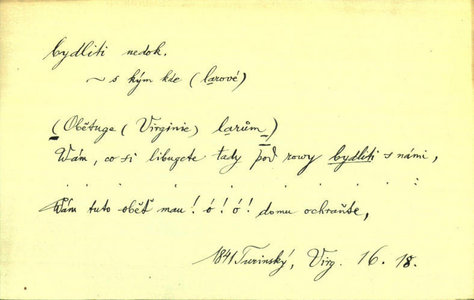 bydliti nedok.
~ s kým kde (larové)
(Obětuge (Virginie) larům)
Wám, co si libugete tady pod rowy bydliti s námi,
. . . . . . . .
Wám tuto oběť mau! ó! ó! domu ochraňte,
1841 Turinský, Virg. 16. 18.